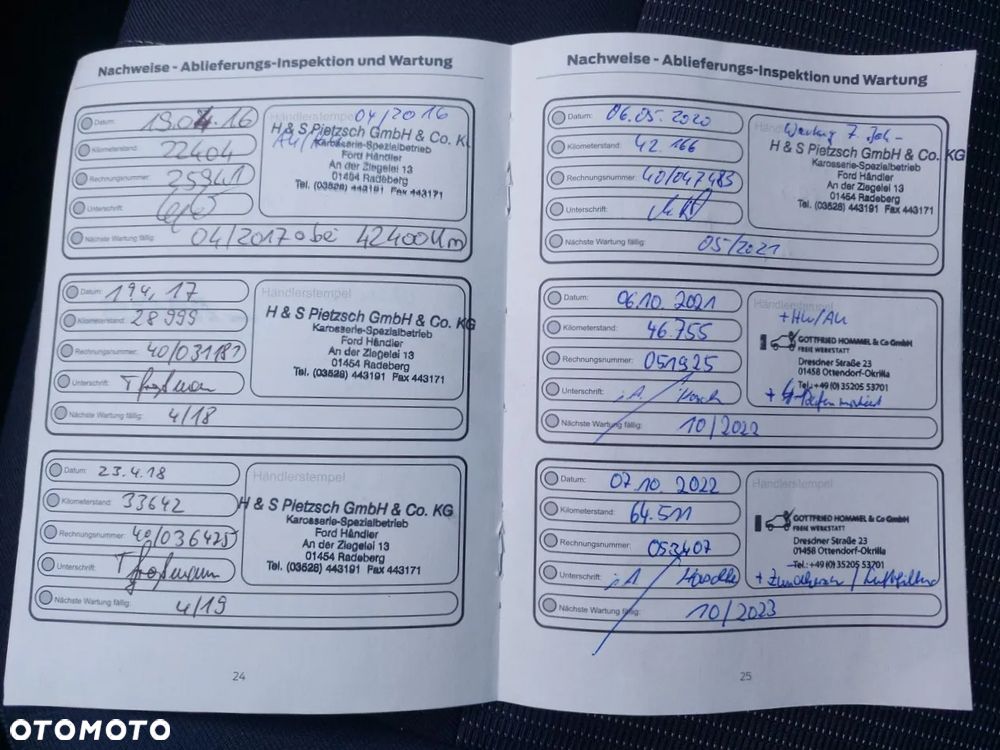 Nachweise - Ablieferungs-Inspektion und Wartung
Datum: 19.04.16
Kilometerstand: 22404
Rechnungsnummer: 25941
Unterschrift:
Nächste Wartung fällig: 04/2017 o bei 42400 Km
Händlerstempel 04/2016
H & S Pietzsch GmbH & Co. KG
Karosserie-Spezialbetrieb
Ford Händler
An der Ziegelei 13
01454 Radeberg
Tel. (03528) 443191 Fax 443171
Datum: 19.4.17
Kilometerstand: 28999
Rechnungsnummer: 40/031181
Unterschrift:
Nächste Wartung fällig: 4/18
Händlerstempel
H & S Pietzsch GmbH & Co. KG
Karosserie-Spezialbetrieb
Ford Händler
An der Ziegelei 13
01454 Radeberg
Tel. (03528) 443191 Fax 443171
Datum: 23.4.18
Kilometerstand: 33642
Rechnungsnummer: 40/036425
Unterschrift:
Nächste Wartung fällig: 4/19
Händlerstempel
H & S Pietzsch GmbH & Co. KG
Karosserie-Spezialbetrieb
Ford Händler
An der Ziegelei 13
01454 Radeberg
Tel. (03528) 443191 Fax 443171
24
Nachweise - Ablieferungs-Inspektion und Wartung
Datum: 06.05.2020
Kilometerstand: 42.166
Rechnungsnummer: 40/047485
Unterschrift:
Nächste Wartung fällig: 05/2021
Wartung 7.
H & S Pietzsch GmbH & Co. KG
Karosserie-Spezialbetrieb
Ford Händler
An der Ziegelei 13
01454 Radeberg
Tel. (03528) 443191 Fax 443171
Datum: 06.10.2021
Kilometerstand: 46.755
Rechnungsnummer: 051925
Unterschrift: i.A.
Nächste Wartung fällig: 10/2022
Händlerstempel
+HU/AU
GOTTFRIED HOMMEL & Co GmbH
FREIE WERKSTATT
Dresdner Straße 23
01458 Ottendorf-Okrilla
Tel.: +49 (0) 35205 53701
Datum: 07.10.2022
Kilometerstand: 64.511
Rechnungsnummer: 053407
Unterschrift: i.A.
Nächste Wartung fällig: 10/2023
Händlerstempel
GOTTFRIED HOMMEL & Co GmbH
FREIE WERKSTATT
Dresdner Straße 23
01458 Ottendorf-Okrilla
Tel.: +49 (0) 35205 53701
+ Zündkerzen / Luftfilter
25
OTOMOTO